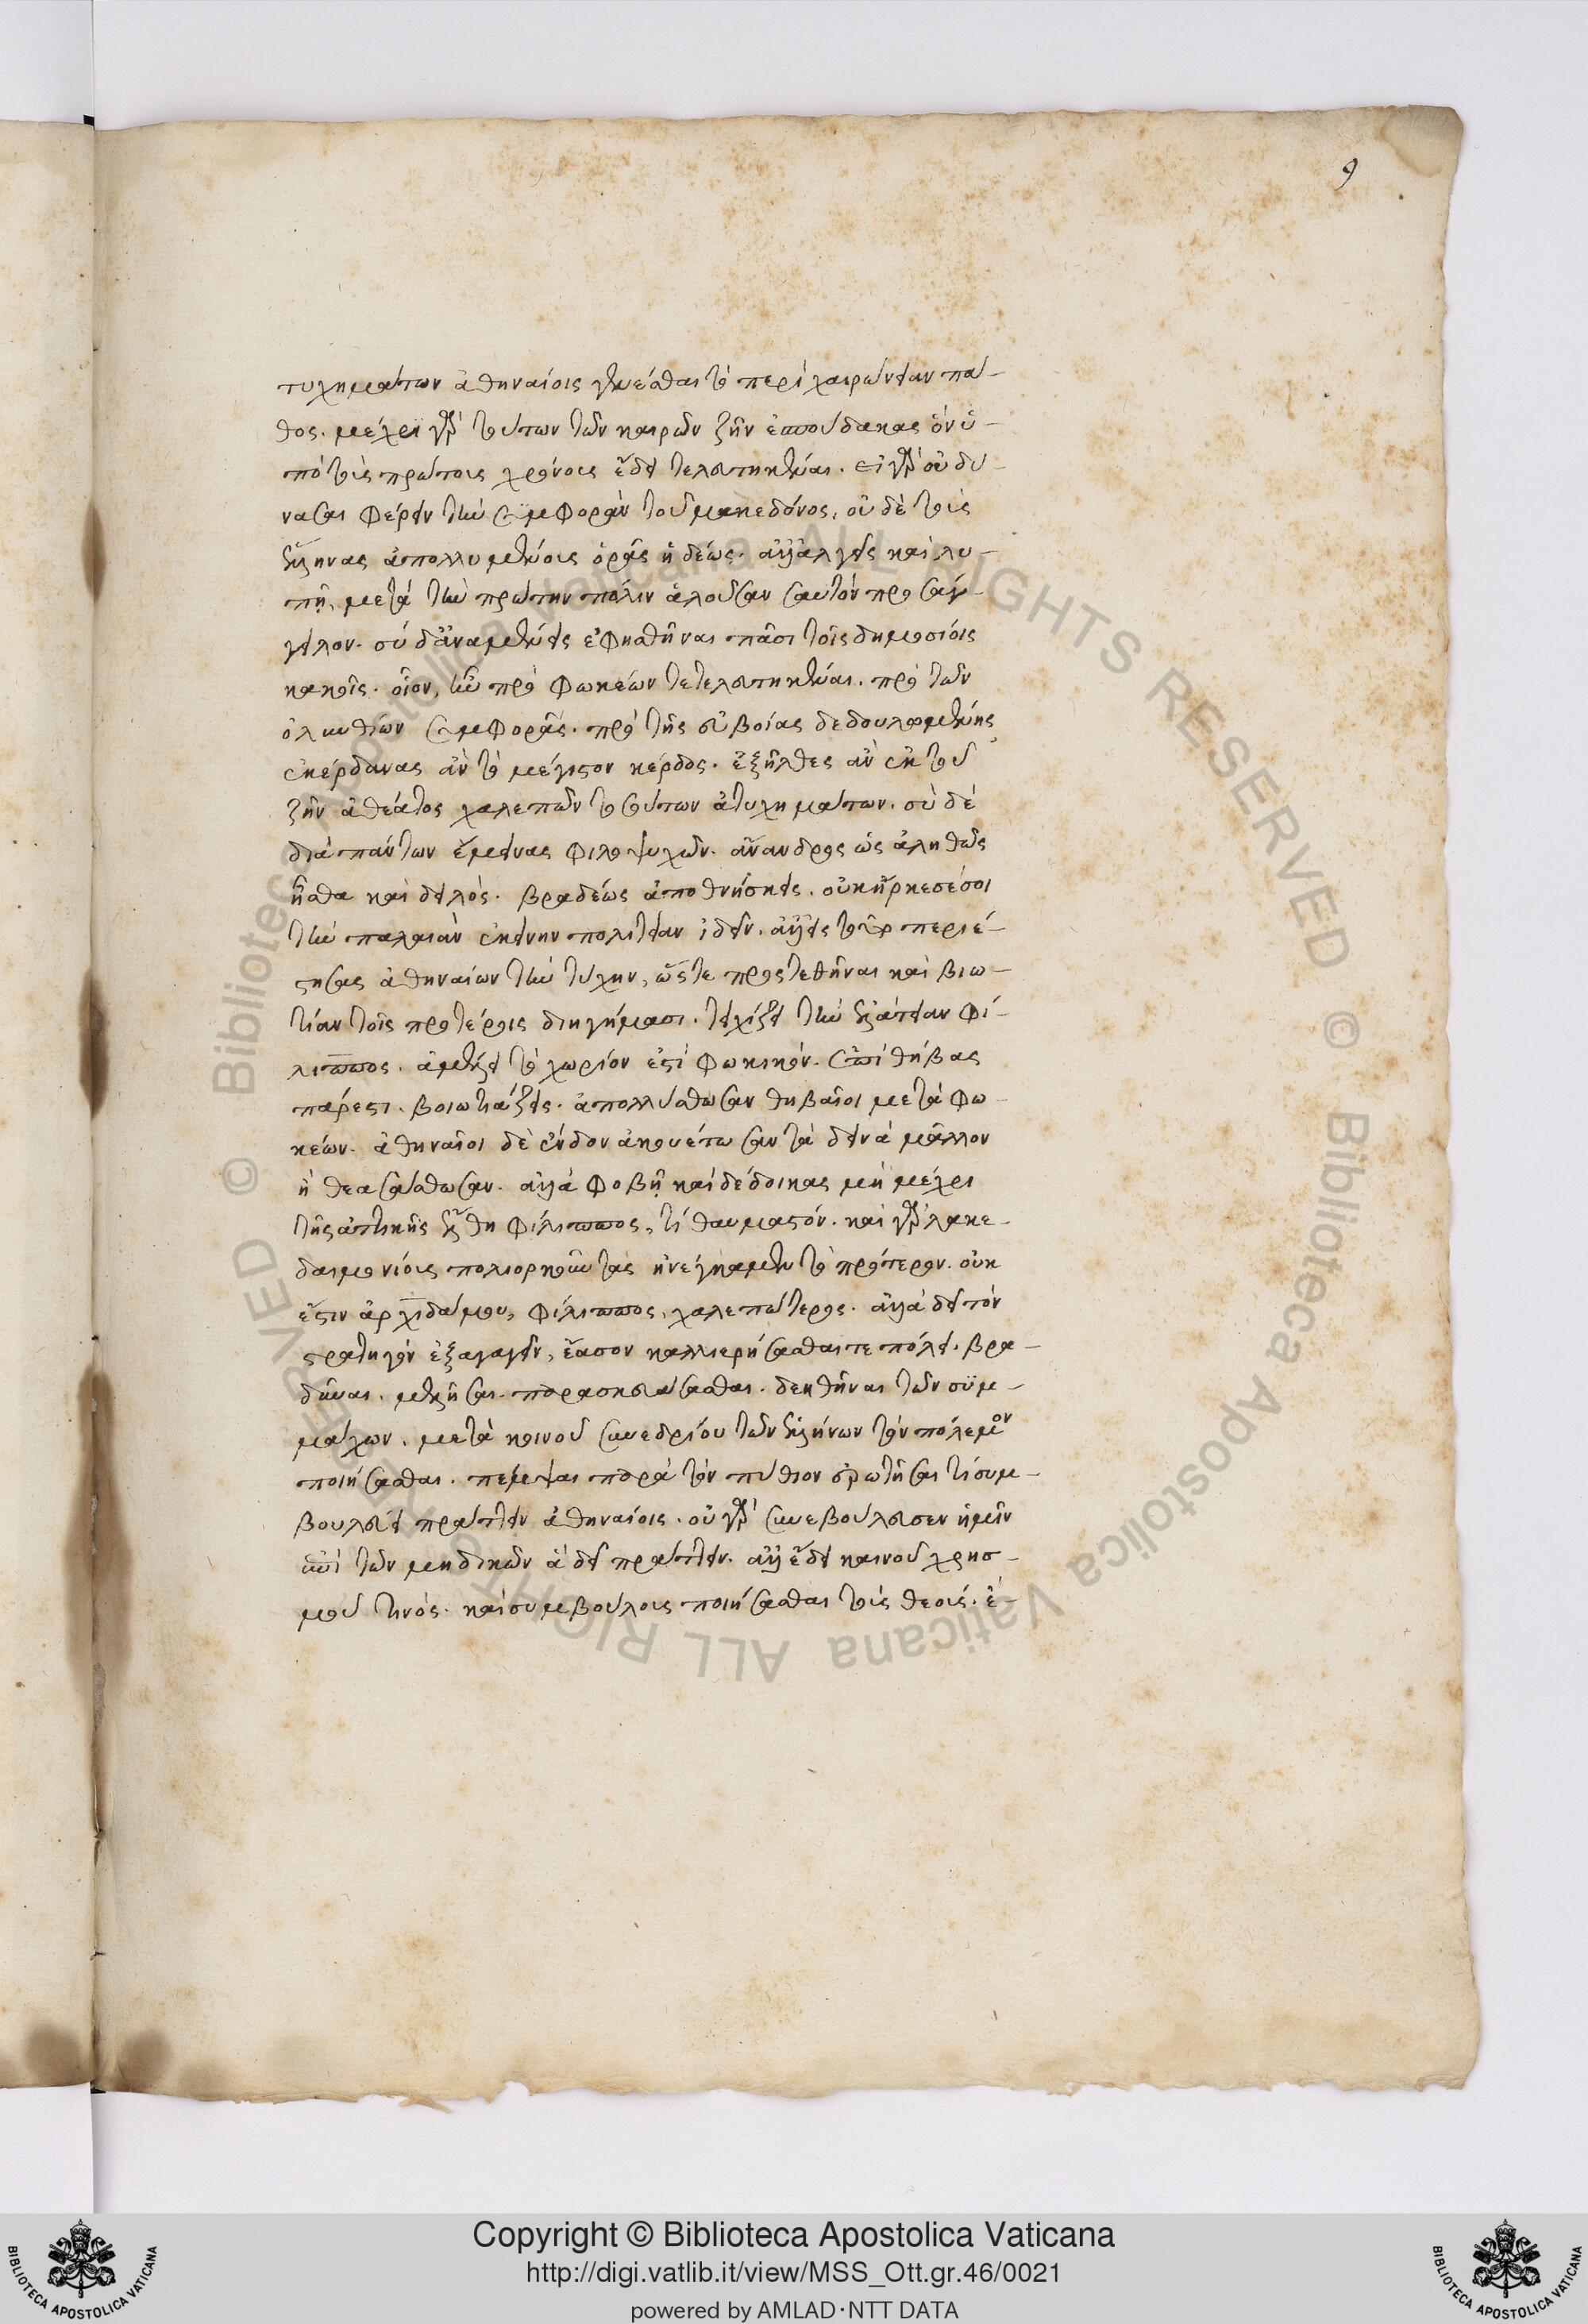 9
τυχημάτων ἀθηναίοις γενέσθαι τὸ περὶ χαιρώνειαν πά-
θος. μέχρι γὰρ τούτων τῶν καιρῶν ζῆν ἐσπούδακας ὃν ὑ-
πὸ τοῖς πρώτοις χρόνοις ἔδει τελευτηκέναι. εἰ γὰρ οὐ δύ-
νασαι φέρειν τὴν συμφορὰν τοῦ μακεδόνος, οὐδὲ τοὺς
ἕλληνας ἀπολλυμένους ὁρᾷς ἡδέως. ἀλλ' ἀλγεῖς καὶ λυ-
πῇ, μετὰ τὴν πρώτην πόλιν ἁλοῦσαν σαυτὸν προσάγ-
γειλον. σὺ δ' ἀναμένεις ἐφησθῆναι πᾶσι τοῖς δημοσίοις
κακοῖς. οἷον, ἦν πρὸ φωκέων τετελευτηκέναι. πρὸ τῶν
ὀλυνθίων συμφορᾶς. πρὸ τῆς εὐβοίας δεδουλωμένης
ἐκέρδανας ἂν τὸ μέγιστον κέρδος. ἐξῆλθες ἂν ἐκ τοῦ
ζῆν ἀθέατος χαλεπῶν τοσούτων ἀτυχημάτων. σὺ δὲ
διὰ πάντων ἔμεινας φιλοψυχῶν. ἄνανδρος ὡς ἀληθῶς
ἦσθα καὶ δειλὸς. βραδέως ἀποθνήσκεις. οὐκ ἤρκεσέ σοι
τὴν παλαιὰν ἐκείνην πολιτείαν ἰδεῖν. ἀλλ' εἰς τοῦτο περιέ-
στησας ἀθηναίων τὴν τύχην, ὥστε προστεθῆναι καὶ βιω-
τίαν τοῖς προτέροις διηγήμασι. τειχίζει τὴν ἐλάτειαν φί-
λιππος. ἀμελεῖ τὸ χωρίον ἐστὶ φωκικόν. ἐπὶ θήβας
πάρεστι. βοιωτιάζεις. ἀπολλύσθωσαν θηβαῖοι μετὰ φω-
κέων. ἀθηναῖοι δὲ ἔνδον ἀκουέτωσαν τὰ δεινὰ μᾶλλον
ἢ θεασάσθωσαν. ἀλλὰ φοβῇ καὶ δέδοικας μὴ μέχρι
τῆς ἀττικῆς ἔλθῃ φίλιππος, τί θαυμαστόν. καὶ γὰρ λακε-
δαιμονίους πολιορκοῦντας ἠνέγκαμεν τὸ πρότερον. οὐκ
ἔστιν ἀρχιδάμου, φίλιππος, χαλεπώτερος. ἀλλὰ δεῖ τὸν
στρατηγὸν ἐξαγαγεῖν, ἔασον καλλιερήσασθαι τε πόλει. βρα-
δῦναι. μελλῆσαι. παρασκευάσασθαι. δεηθῆναι τῶν συμ-
μάχων. μετὰ κοινοῦ συνεδρίου τῶν ἑλλήνων τὸν πόλεμον
ποιήσασθαι. πέμψαι παρὰ τὸν πύθιον ἐρωτῆσαι τί συμ-
βουλεύει πράττειν ἀθηναίοις. οὐ γὰρ συνεβούλευσεν ἡμῖν
ἐπὶ τῶν μηδικῶν ἃ δεῖ πράττειν. ἀλλ' ἔδει καινοῦ χρησ-
μοῦ τινός. καὶ συμβούλους ποιήσασθαι τοὺς θεούς. ἐ-
Copyright © Biblioteca Apostolica Vaticana
http://digi.vatlib.it/view/MSS_Ott.gr.46/0021
powered by AMLAD·NTT DATA